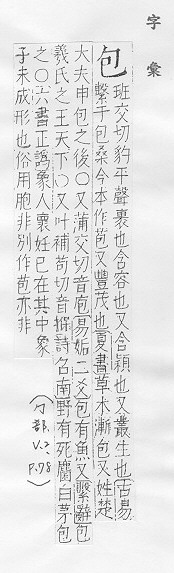 字彙
包 班交切豹平聲裹也含容也又含穎也又叢生也易
繫于包桑今本作苞又豐茂也夏書草木漸包又姓楚
大夫申包之後○又蒲交切音庖易姤二爻包有魚又繫辭包
羲氏之王天下○又叶補苟切音掊詩召南野有死麕白茅包
之○六書正譌象人裹妊巳在其中象
子未成形也俗用胞非別作苞亦非
(勹部 V.2, P.78)